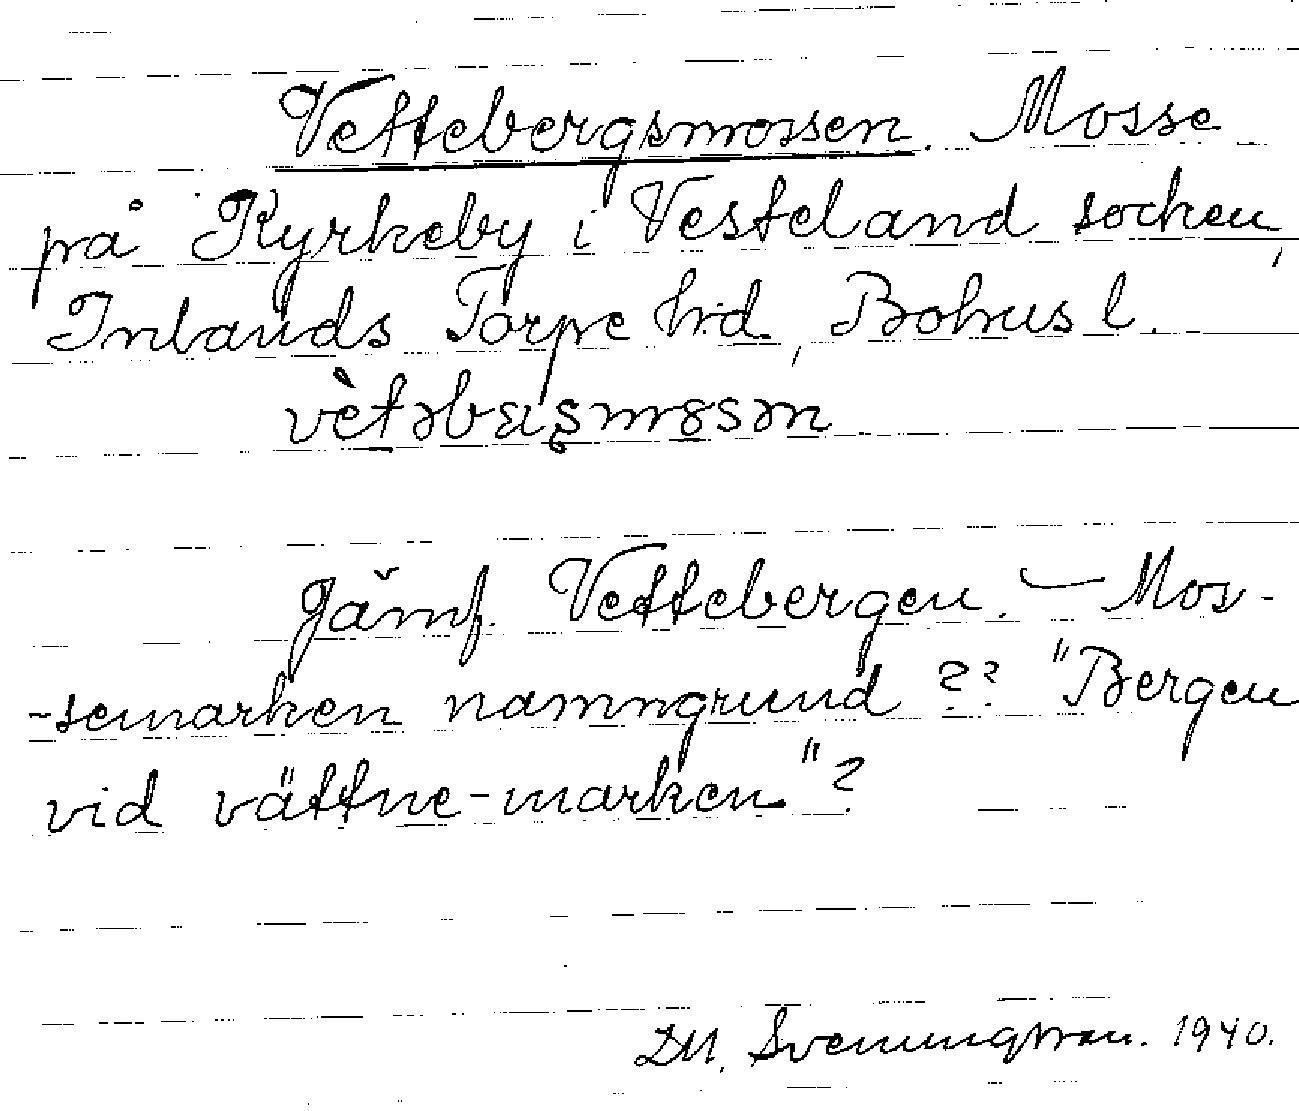 Vettebergsmossen. Mosse
på Kyrkeby i Vesteland socken,
Inlands Torpe hd, Bohusl.
vètəbæʂmɷsən
Jämf. Vettebergen. – Mos-
-semarken namngrund ?? "Bergen
vid vättne-marken"?
DM. Svenungsson. 1940.